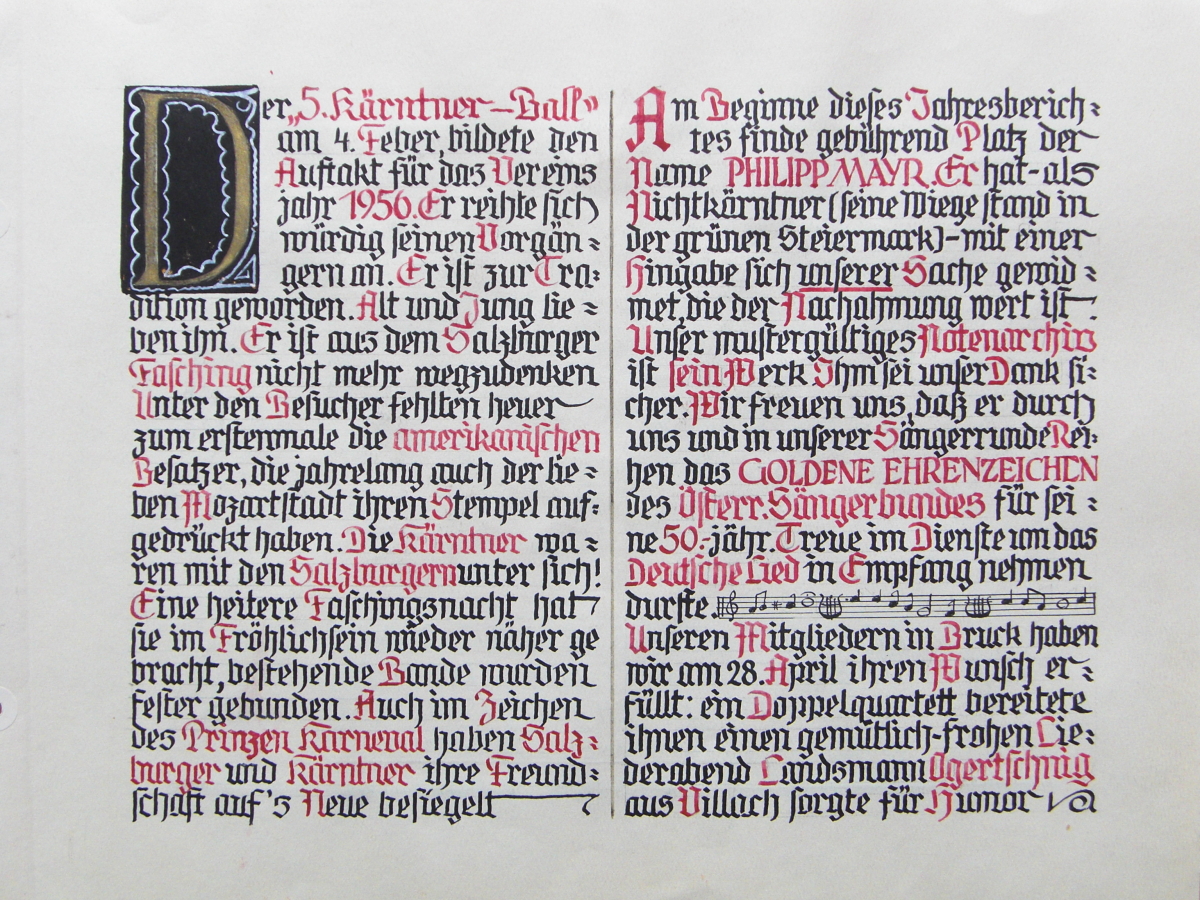 Der „5. Kärntner-Ball"
am 4. Feber, bildete den
Auftakt für das Vereins
jahr 1956. Er reihte sich
würdig seinen Vorgän=
gern an. Er ist zur Tra=
dition geworden. Alt und Jung lie=
ben ihn. Er ist aus dem Salzburger
Fasching nicht mehr wegzudenken
Unter den Besucher fehlten heuer
zum erstenmale die amerikanischen
Besatzer, die jahrelang auch der lie=
ben Mozartstadt ihren Stempel auf=
gedrückt haben. Die Kärntner wa=
ren mit den Salzburgern unter sich!
Eine heitere Faschingsnacht hat
sie im Fröhlichsein wieder näher ge
bracht, bestehende Bande wurden
fester gebunden. Auch im Zeichen
des Prinzen Karneval haben Salz=
burger und Kärntner ihre Freund=
schaft auf's Neue besiegelt
Am Beginne dieses Jahresberich=
tes finde gebührend Platz der
Name PHILIPP MAYR. Er hat-als
Nichtkärntner (seine Wiege stand in
der grünen Steiermark)-mit einer
Hingabe sich unserer Sache gewid=
met, die der Nachahmung wert ist.
Unser mustergültiges Notenarchiv
ist sein Werk Ihm sei unser Dank si=
cher. Wir freuen uns, daß er durch
uns und in unserer Sängerrunde Rei=
hen das GOLDENE EHRENZEICHEN
des Österr. Sängerbundes für sei=
ne 50.-jähr. Treue im Dienste um das
Deutsche Lied in Empfang nehmen
durfte.
Unseren Mitgliedern in Bruck haben
wir am 28. April ihren Wunsch er=
füllt: ein Doppelquartett bereitete
ihnen einen gemütlich-frohen Lie=
derabend Landsmann Ogertschnig
aus Villach sorgte für Humor